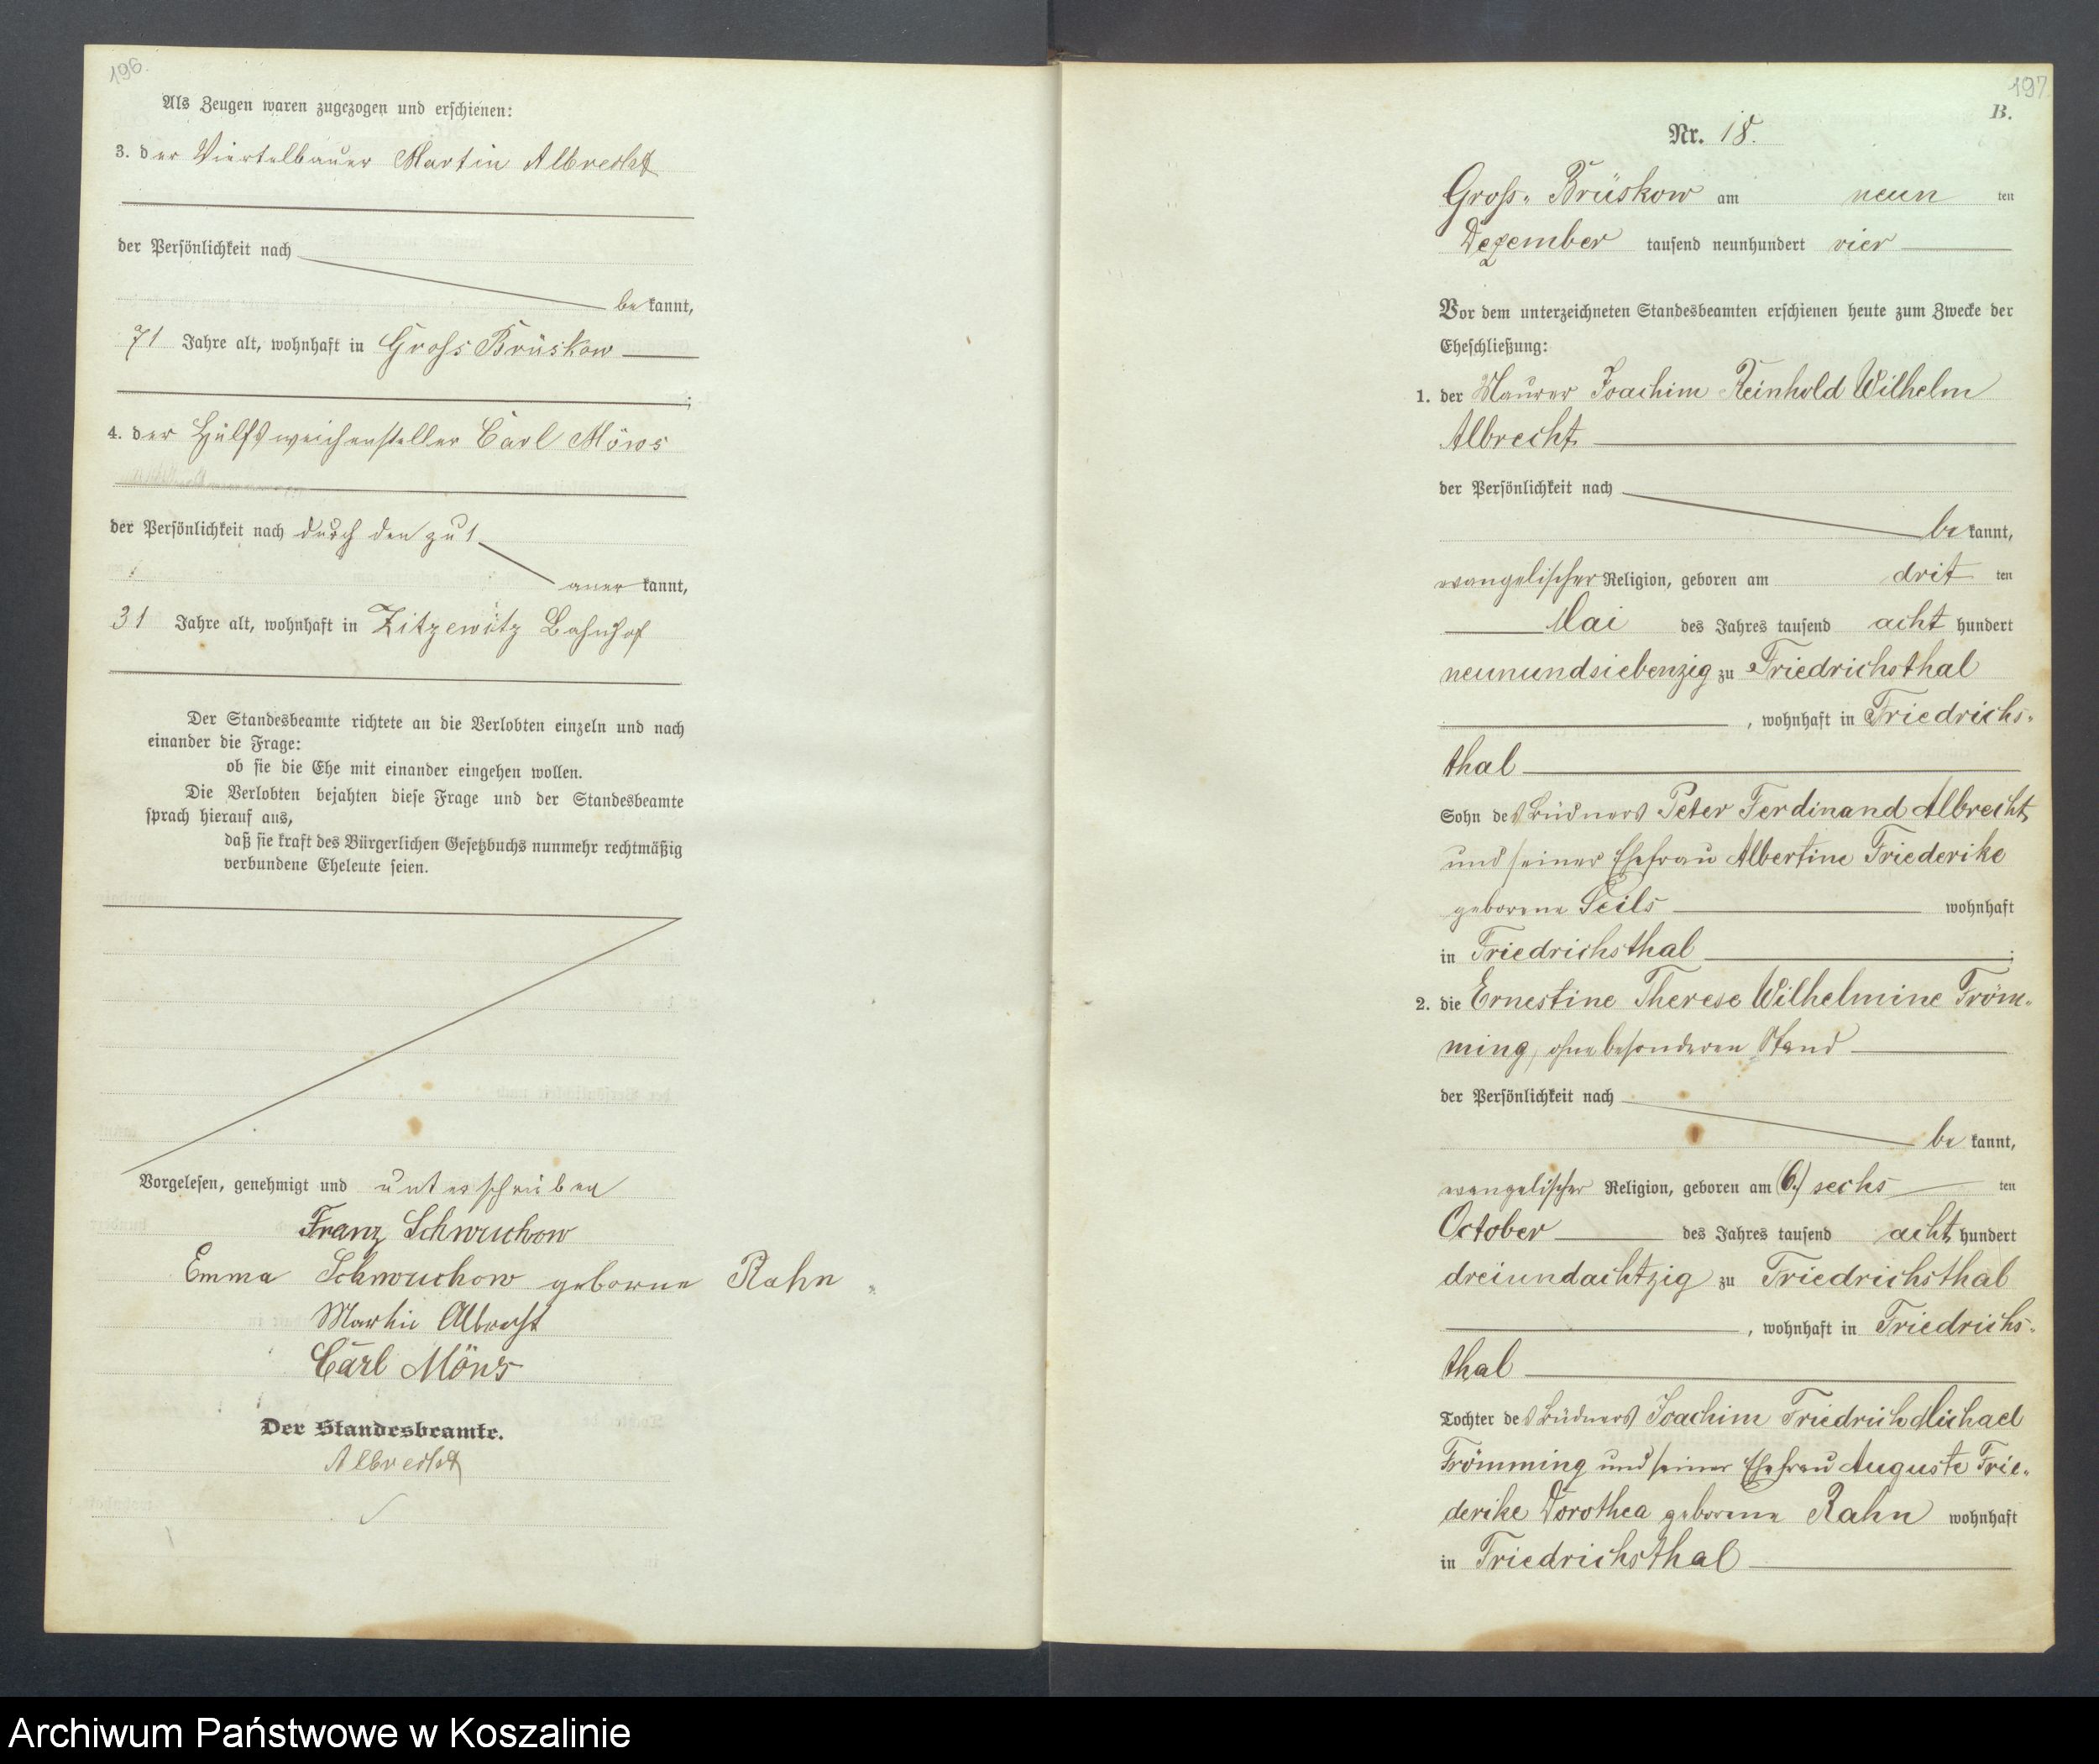 196.
Als Zeugen waren zugezogen und erschienen:
3. der Viertelbauer Martin Albrecht
der Persönlichkeit nach
bekannt,
71 Jahre alt, wohnhaft in Gross Brüskow
;
4. der Hülfsweichensteller Carl Möws
der Persönlichkeit nach durch den zu 1
anerkannt,
31 Jahre alt, wohnhaft in Zitzewitz Bahnhof
Der Standesbeamte richtete an die Verlobten einzeln und nach
einander die Frage:
ob sie die Ehe mit einander eingehen wollen.
Die Verlobten bejahten diese Frage und der Standesbeamte
sprach hierauf aus,
daß sie kraft des Bürgerlichen Gesetzbuchs nunmehr rechtmäßig
verbundene Eheleute seien.
Vorgelesen, genehmigt und unterschrieben
Franz Schwuchow
Emma Schwuchow geborene Rahn
Martin Albrecht
Carl Möws
Der Standesbeamte.
Albrecht
197
B.
Nr. 18.
Gross-Brüskow am neun ten
Dezember tausend neunhundert vier
Vor dem unterzeichneten Standesbeamten erschienen heute zum Zwecke der
Eheschließung:
1. der Maurer Joachim Reinhold Wilhelm
Albrecht
der Persönlichkeit nach
bekannt,
evangelischer Religion, geboren am drit ten
Mai des Jahres tausend acht hundert
neunundsiebenzig zu Friedrichsthal
, wohnhaft in Friedrichs-
thal
Sohn des Büdners Peter Ferdinand Albrecht
und seiner Ehefrau Albertine Friederike
geborene Seils wohnhaft
in Friedrichsthal ;
2. die Ernestine Therese Wilhelmine Fröm-
ming, ohne besonderen Stand
der Persönlichkeit nach
bekannt,
evangelischer Religion, geboren am (6.) sechs ten
October des Jahres tausend acht hundert
dreiundachtzig zu Friedrichsthal
, wohnhaft in Friedrichs-
thal
Tochter des Büdners Joachim Friedrich Michael
Frömming und seiner Ehefrau Auguste Frie-
derike Dorothea geborene Rahn wohnhaft
in Friedrichsthal
Archiwum Państwowe w Koszalinie